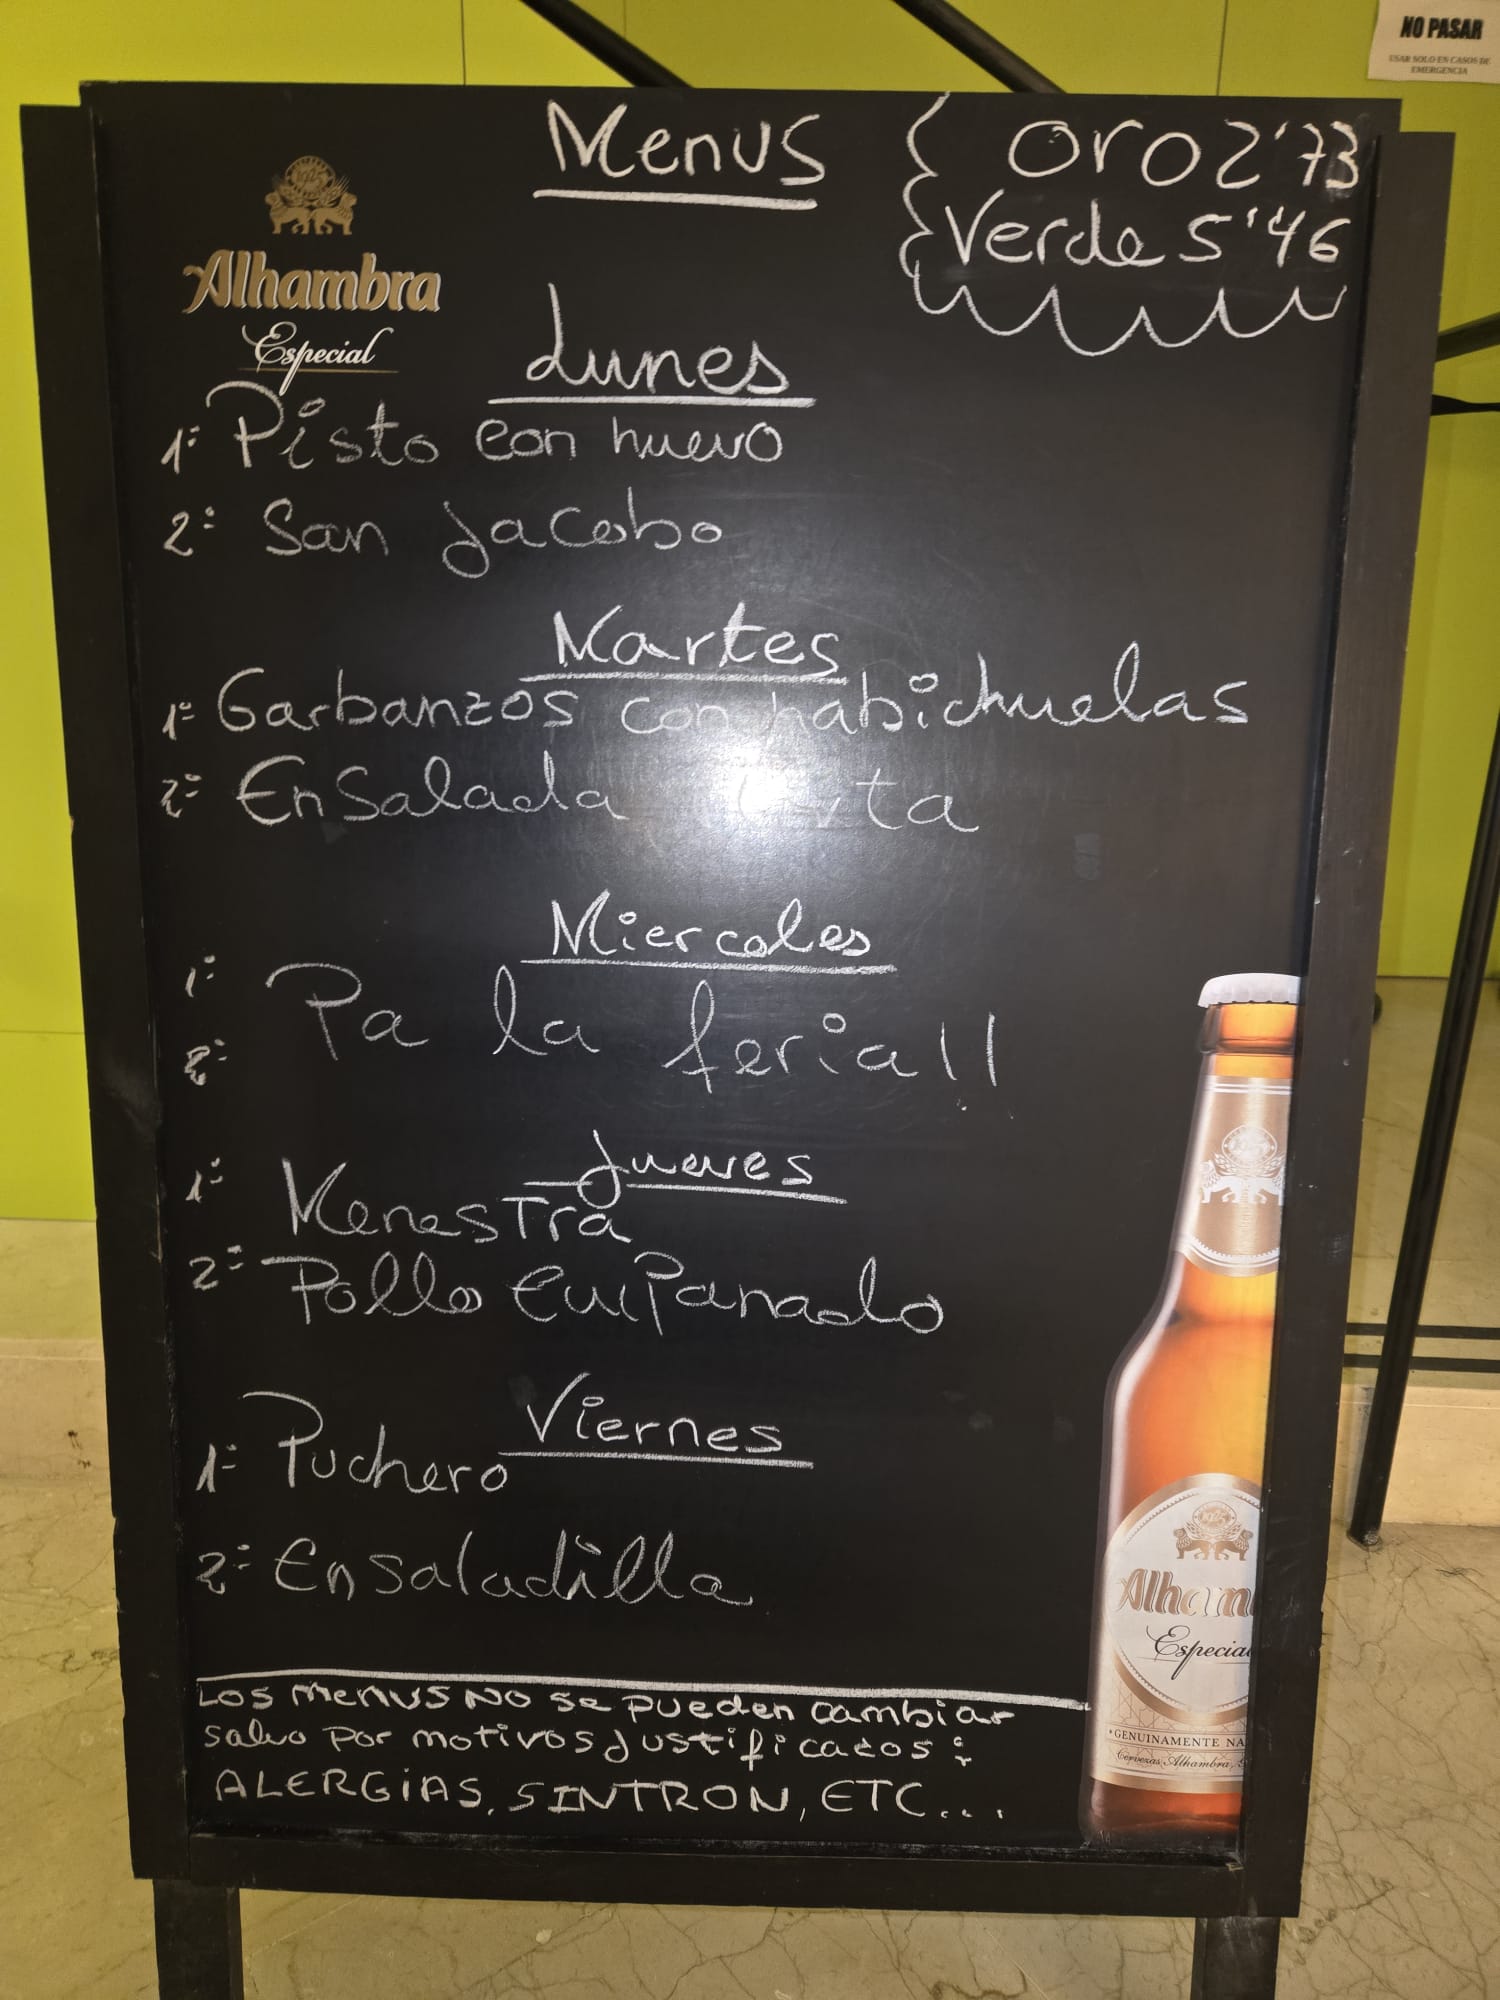 NO PASAR
USAR SOLO EN CASOS DE
EMERGENCIA
Menus
Oro 2'73
Verde 5'46
1925
Alhambra
Especial
Lunes
1º Pisto con huevo
2º San Jacobo
Martes
1º Garbanzos con habichuelas
2º Ensalada
Miercoles
1º
Pa la feria!!
2º
Jueves
1º Menestra
2º Pollo Empanado
Viernes
1º Puchero
2º Ensaladilla
Los menus no se pueden cambiar
salvo por motivos justificados:
ALERGiAS, SINTRON, ETC...
1925
Alham
Especial
GENUINAMENTE NA
Cervezas Alhambra, S